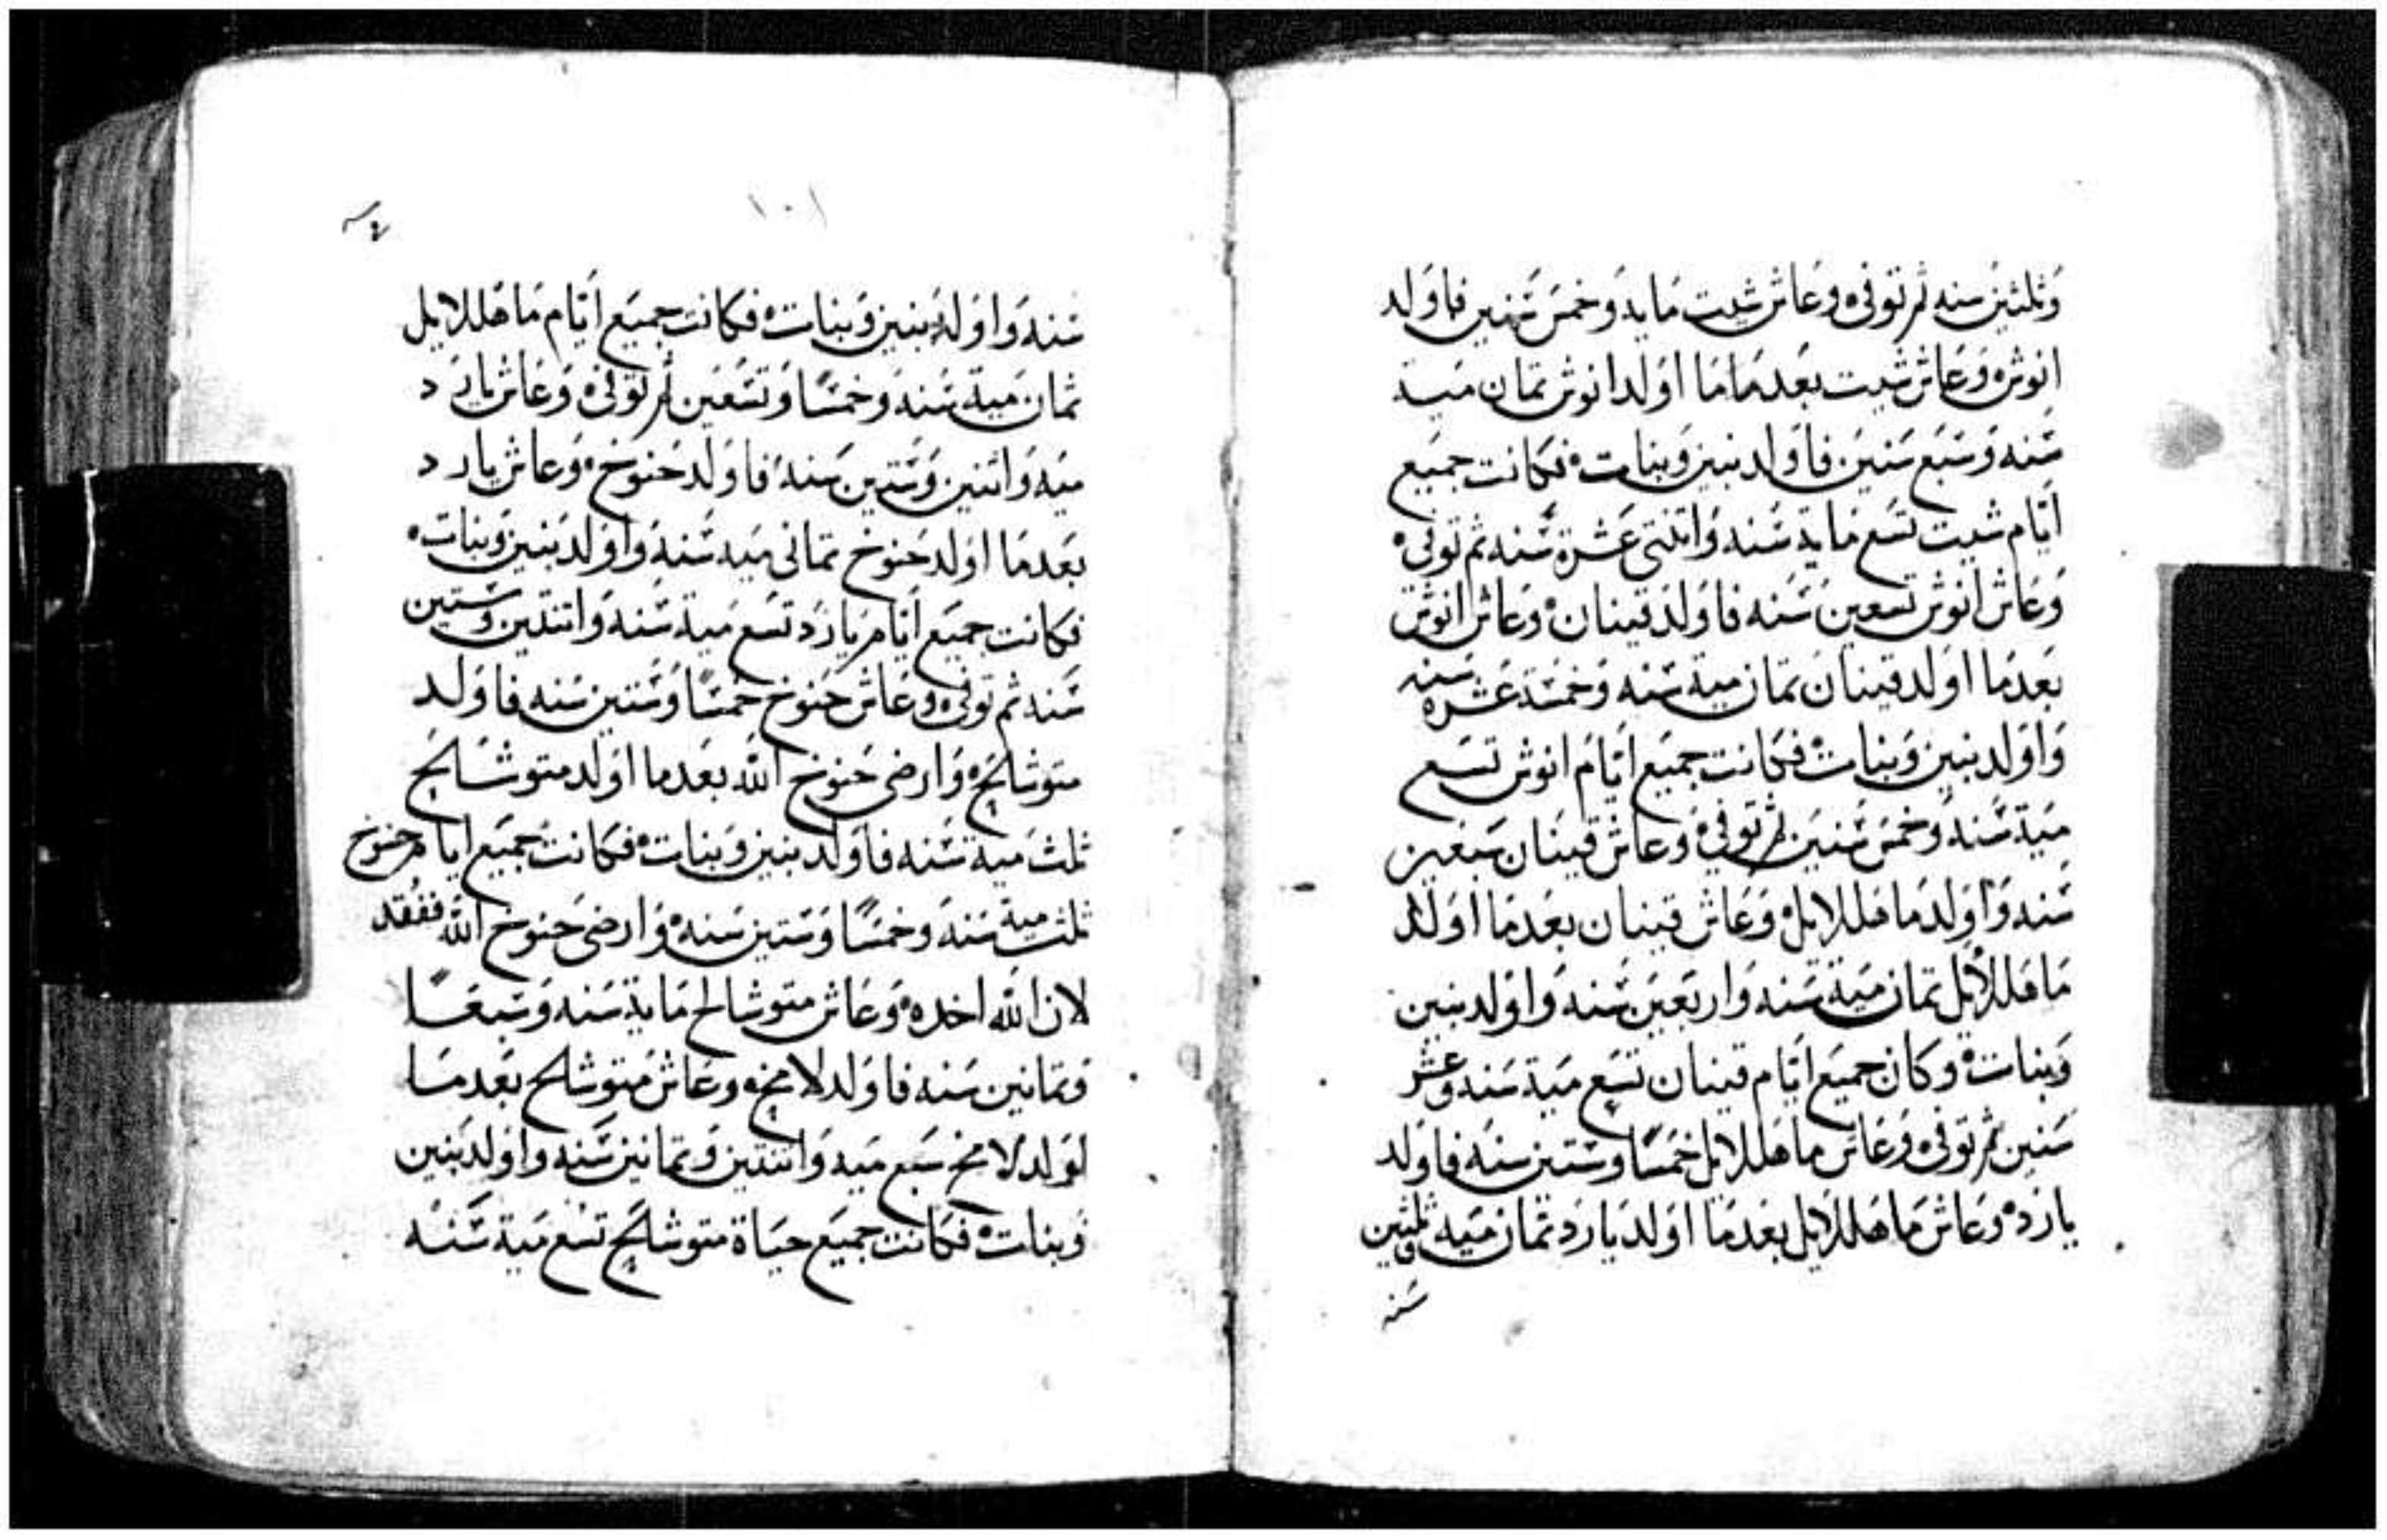 وَثلثين سنه ثم توفى ٥ وعَاش شيت مَايه وَخمسَ سَنين فاوَلد
انوش ٥ وَعَاش شيت بعَدمَا مَا اوَلد انوش تمان ميَة
سَنه وَسَبع سَنين فاوَلد بنين وَبنات ٥ فكانت جميَع
ايَام شيت تسَع مَاية سَنه وَاتنتى عَشرة سَنه ثم توفى ٥
وَعَاش انوش تسعين سَنه فاوَلد قينان ٥ وعَاش انوش
بعَدمَا اوَلد قينان تمان مية سَنه وَخمسَة عَشره سَنه
وَاوَلد بنين وَبنات ٥ فكانت جميَع ايَام انوش تسَع
ميَة سَنه وَخمسَ سَنين ثم توفى ٥ وعَاش قينَان سَبعَين
سَنه وَاوَلد مَاهللايل ٥ وَعَاش قينان بعَدمَا اوَلد
مَاهللايل تمان ميَة سَنه وَاربعَين سَنه وَاوَلد بنين
وَبنات ٥ وكان جميَع ايَام قينان تسَع ميَة سَنه وعشر
سَنين ثم توفى ٥ وَعَاش ماهللايل خمسًا وَستين سَنه فاوَلد
يارَد ٥ وعَاش مَاهللايل بعَدمَا اوَلد يارَد تمان ميَه وثلثين
سَنه
١٠١
سَنه وَاوَلد بنين وَبنات ٥ فكانت جميَع ايَام مَاهللايل
تمان ميَة سَنه وَخمسًا وَتسَعَين ثم توفى ٥ وَعَاش يارَد
ميَه وَاتنين وَسَتين سَنه فاوَلد حَنوخ ٥ وَعاش يارد
بعَدمَا اوَلد حَنوخ تمانى ميَه سَنه وَاوَلد بنين وَبنات ٥
فكانت جميَع ايَام يارَد تسَع ميَة سَنه وَاتنتين وَسَتين
سَنه ثم توفى ٥ وعَاش حَنوخ خمسًا وَسَتين سَنه فاوَلد
متوشالح ٥ وَارضى حَنوخ الله بعَدما اوَلد متوشالح
ثلث ميَة سَنه فاوَلد بنين وَبنات ٥ فكانت جميَع ايام حنوخ
ثلث مية سَنه وَخمسًا وَسَتين سَنه ٥ وَارضى حَنوخ الله ففقد
لان الله اخده ٥ وَعَاش متوشالح مَاية سَنه وَسَبعًا
وَتمانين سَنه فاوَلد لامخ ٥ وعَاش متوشالح بعَدمَا
اوَلد لامخ سَبع ميَه وَاتنتين وَتمانين سَنه وَاوَلد بَنين
وَبنات ٥ فكانت جميَع حيَاة متوشالح تسَع ميَة سَنه